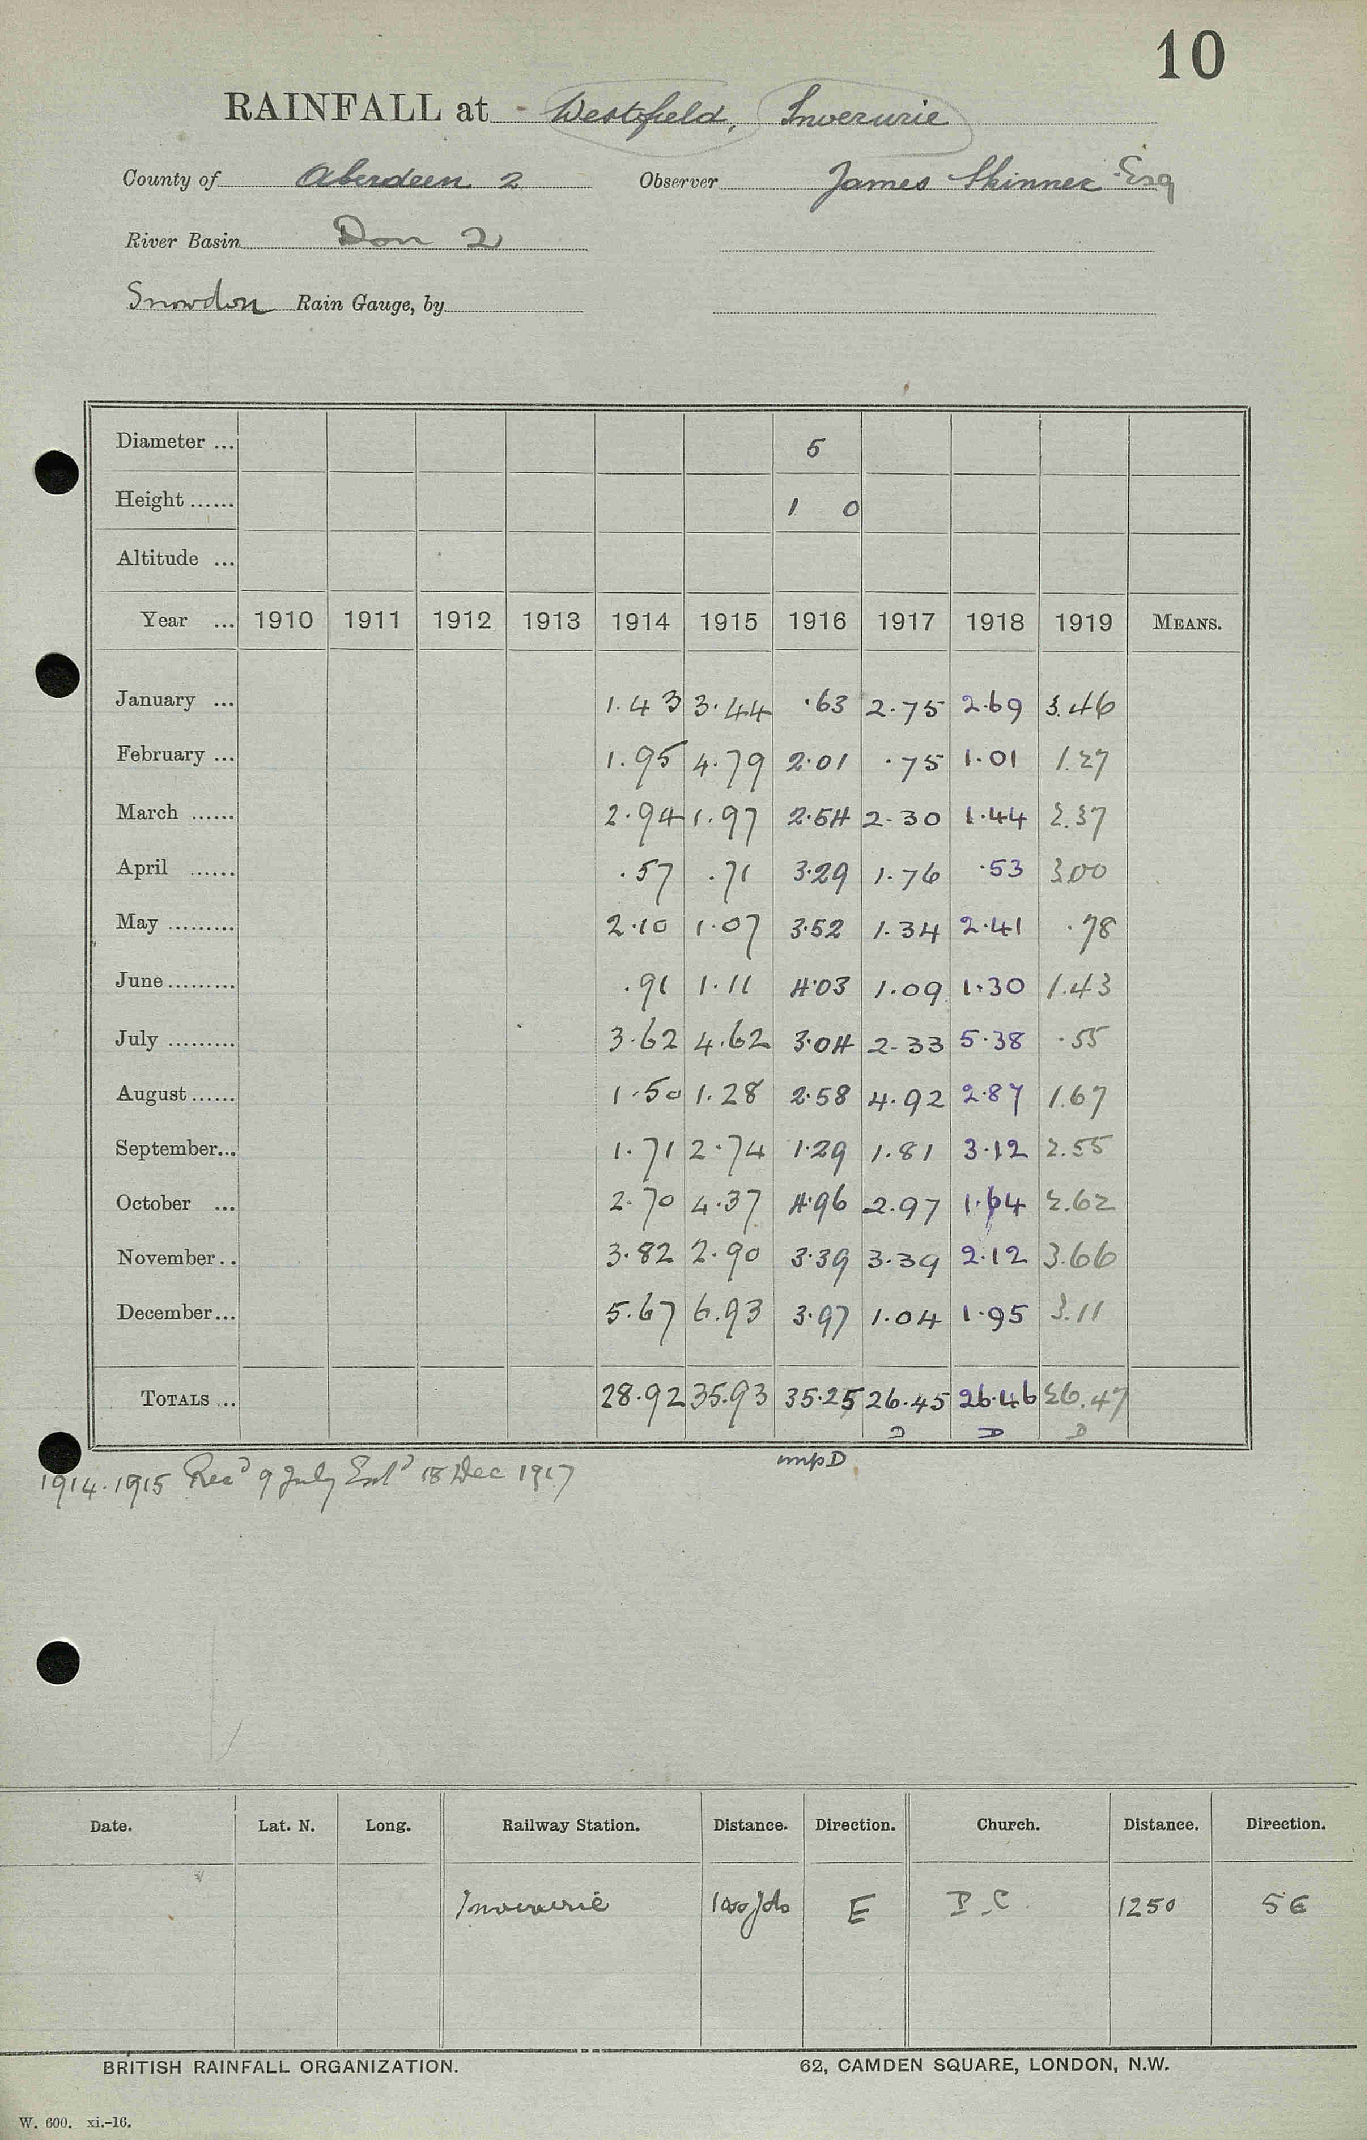 10
RAINFALL at Westfield, Inverurie
County of Aberdeen 2 Observer James Skinner Esq
River Basin Don 2
Snowdon Rain Gauge, by
Diameter ... 5
Height ...... 1 0
Altitude ...
Year ... 1910 1911 1912 1913 1914 1915 1916 1917 1918 1919 MEANS.
January ... 1.43 3.44 .63 2.75 2.69 3.46
February ... 1.95 4.79 2.01 .75 1.01 1.27
March ...... 2.94 1.97 2.54 2.30 1.44 2.37
April ...... .57 .71 3.29 1.76 .53 3.00
May ......... 2.10 1.07 3.52 1.34 2.41 .78
June ......... .91 1.11 4.03 1.09 1.30 1.43
July ......... 3.62 4.62 3.04 2.33 5.38 .55
August ...... 1.50 1.28 2.58 4.92 2.87 1.67
September... 1.71 2.74 1.29 1.81 3.12 2.55
October ... 2.70 4.37 4.96 2.97 1.64 2.62
November.. 3.82 2.90 3.39 3.39 2.12 3.66
December... 5.67 6.93 3.97 1.04 1.95 3.11
TOTALS ... 28.92 35.93 35.25 26.45 26.46 26.47
D D D
impD
1914.1915 Recd 9 July Extd 18 Dec 1917
Date. Lat. N. Long. Railway Station. Distance. Direction. Church. Distance. Direction.
Inverurie E P.C. 1250 SE
BRITISH RAINFALL ORGANIZATION. 62, CAMDEN SQUARE, LONDON, N.W.
W. 600. xi.-16.